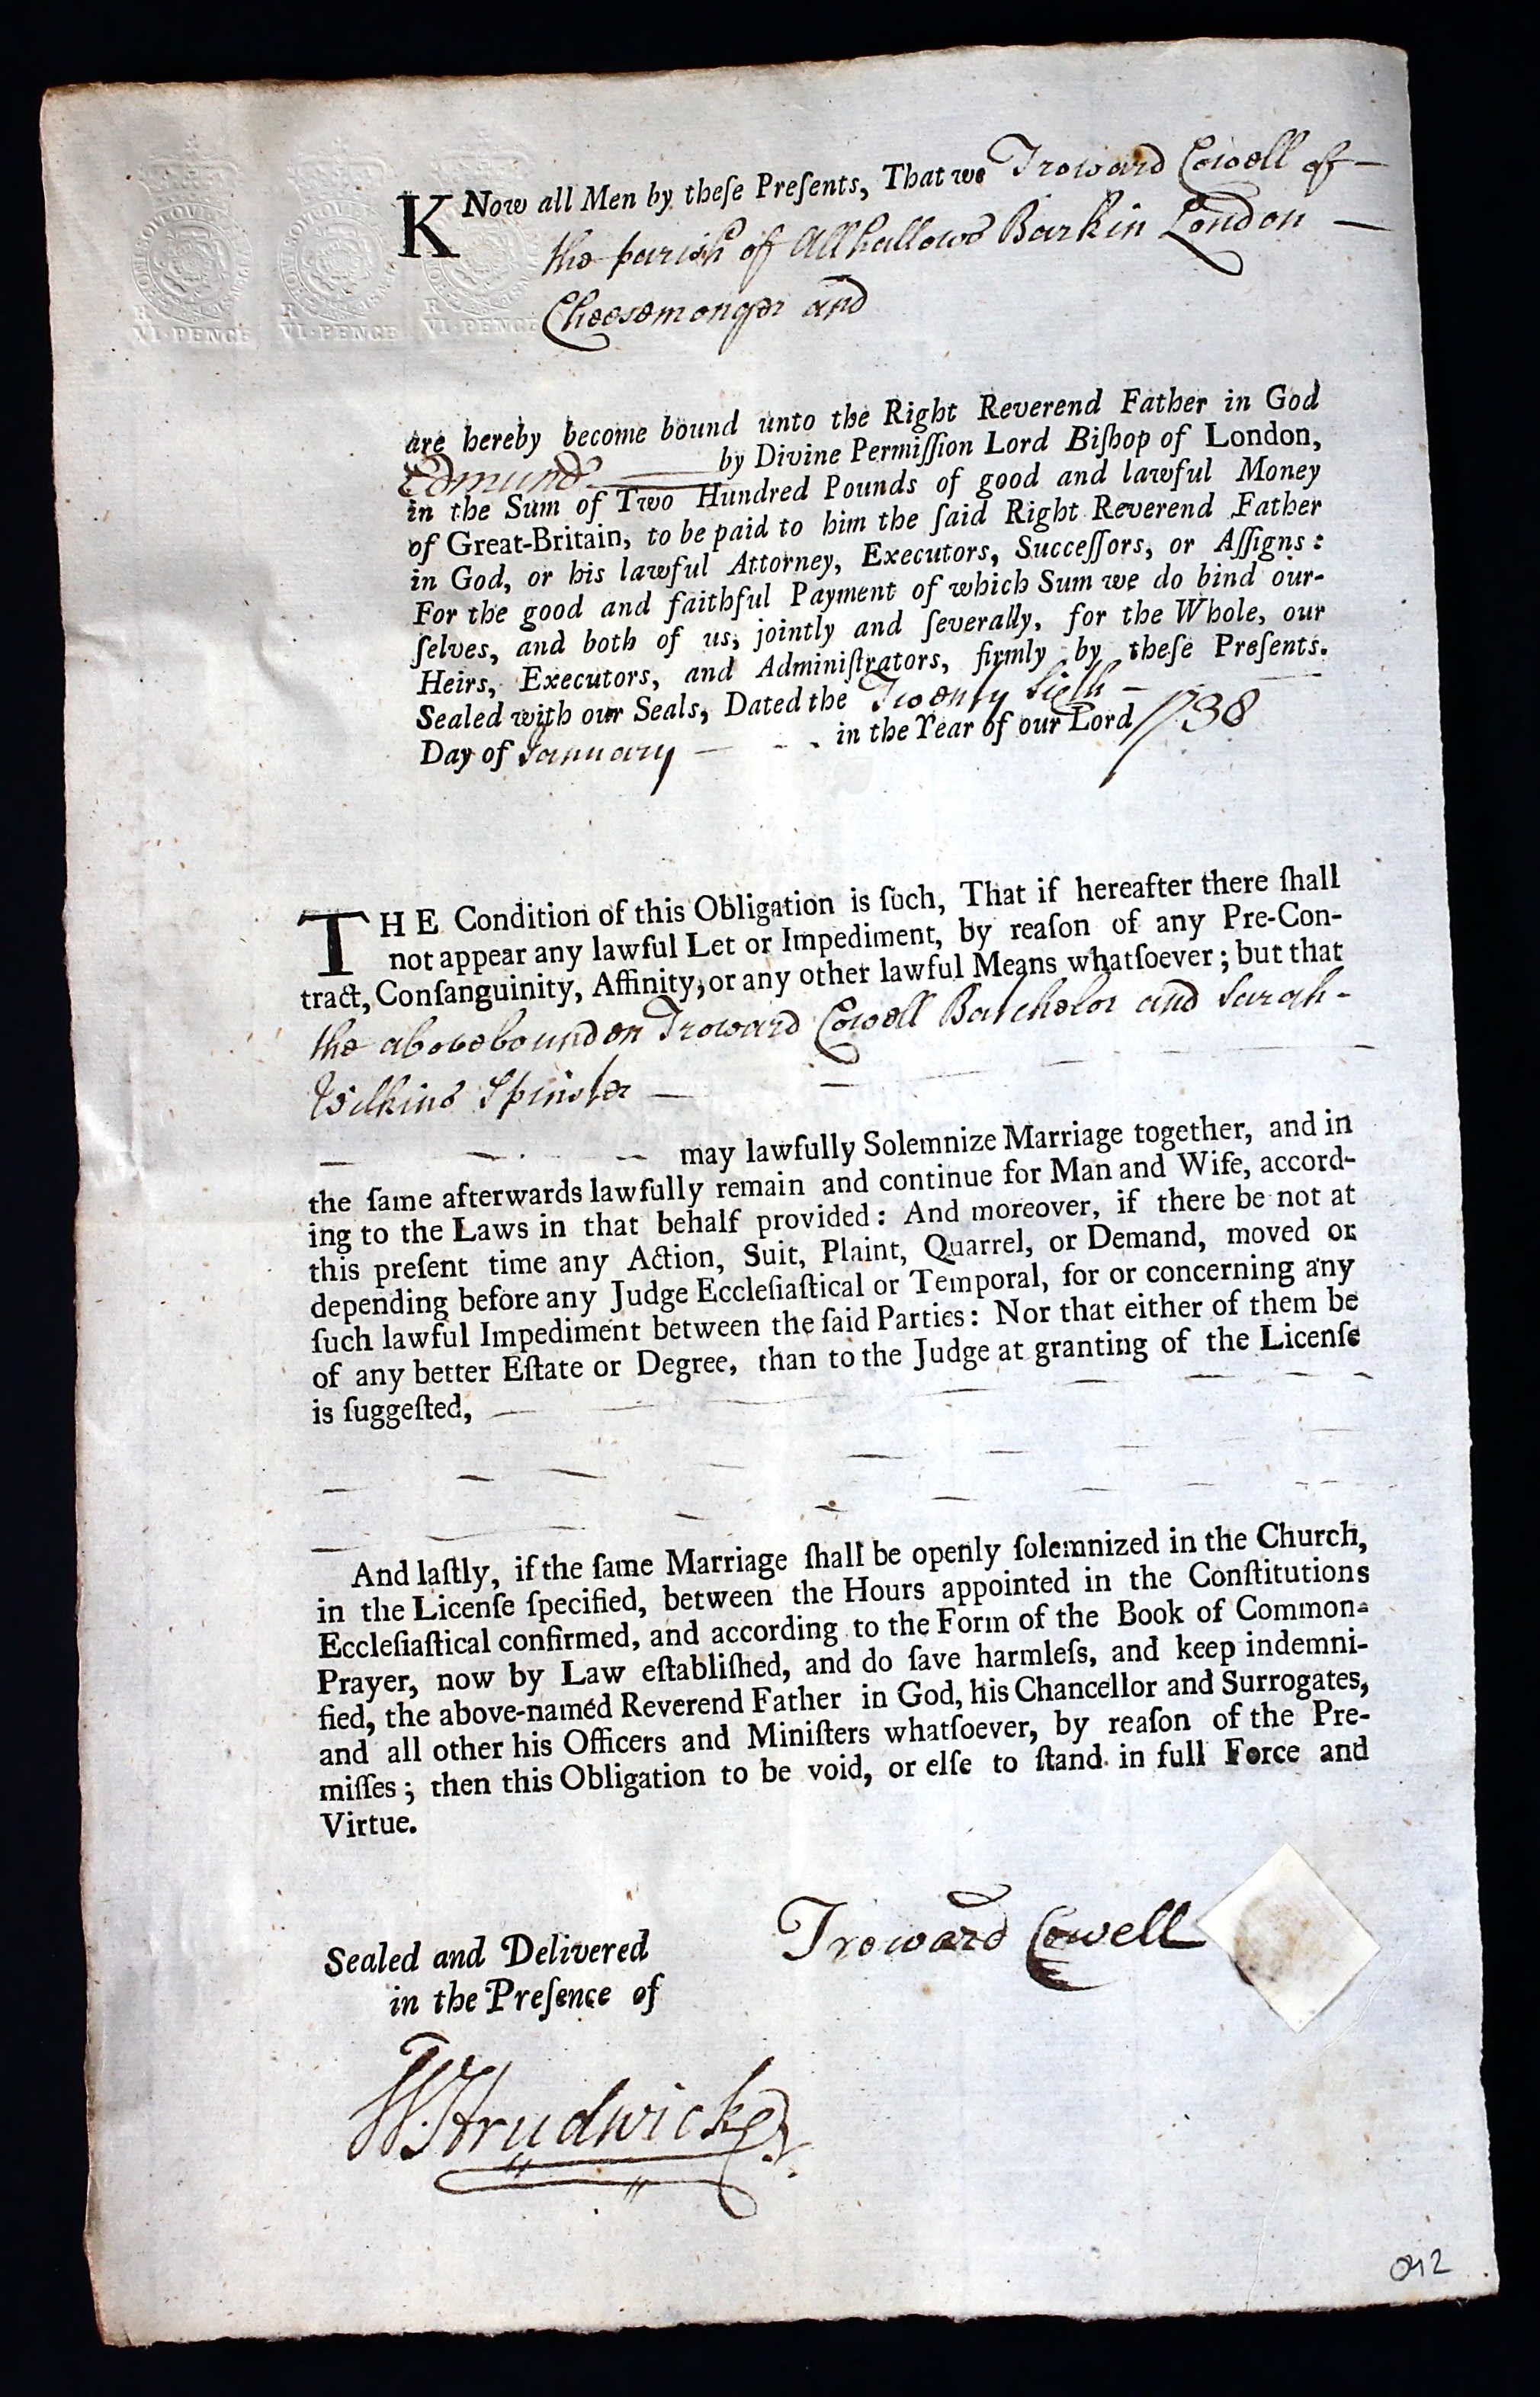 HONI SOIT QUI MAL Y PENSE
R
VI·PENCE
R
VI·PENCE
R
VI·PENCE
KNow all Men by theſe Preſents, That we Troward Cowell of —
the parish of Allhallows Barkin London —
Cheesemonger and
are hereby become bound unto the Right Reverend Father in God
Edmund by Divine Permiſſion Lord Biſhop of London,
in the Sum of Two Hundred Pounds of good and lawful Money
of Great-Britain, to be paid to him the ſaid Right Reverend Father
in God, or his lawful Attorney, Executors, Succeſſors, or Aſſigns:
For the good and faithful Payment of which Sum we do bind our-
ſelves, and both of us, jointly and ſeverally, for the Whole, our
Heirs, Executors, and Adminiſtrators, firmly by theſe Preſents.
Sealed with our Seals, Dated the Twenty Sixth —
Day of January — in the Year of our Lord 1738
THE Condition of this Obligation is ſuch, That if hereafter there ſhall
not appear any lawful Let or Impediment, by reaſon of any Pre-Con-
tract, Conſanguinity, Affinity, or any other lawful Means whatſoever; but that
the abovebounden Troward Cowell Batchelor and Sarah -
Wilkins Spinster —
may lawfully Solemnize Marriage together, and in
the ſame afterwards lawfully remain and continue for Man and Wife, accord-
ing to the Laws in that behalf provided: And moreover, if there be not at
this preſent time any Action, Suit, Plaint, Quarrel, or Demand, moved or
depending before any Judge Eccleſiaſtical or Temporal, for or concerning any
ſuch lawful Impediment between the ſaid Parties: Nor that either of them be
of any better Eſtate or Degree, than to the Judge at granting of the Licenſe
is ſuggeſted,
And laſtly, if the ſame Marriage ſhall be openly ſolemnized in the Church,
in the Licenſe ſpecified, between the Hours appointed in the Conſtitutions
Eccleſiaſtical confirmed, and according to the Form of the Book of Common-
Prayer, now by Law eſtabliſhed, and do ſave harmleſs, and keep indemni-
fied, the above-named Reverend Father in God, his Chancellor and Surrogates,
and all other his Officers and Miniſters whatſoever, by reaſon of the Pre-
miſſes; then this Obligation to be void, or elſe to ſtand in full Force and
Virtue.
Sealed and Delivered
in the Preſence of
Troward Cowell
W. Strudwicke
042